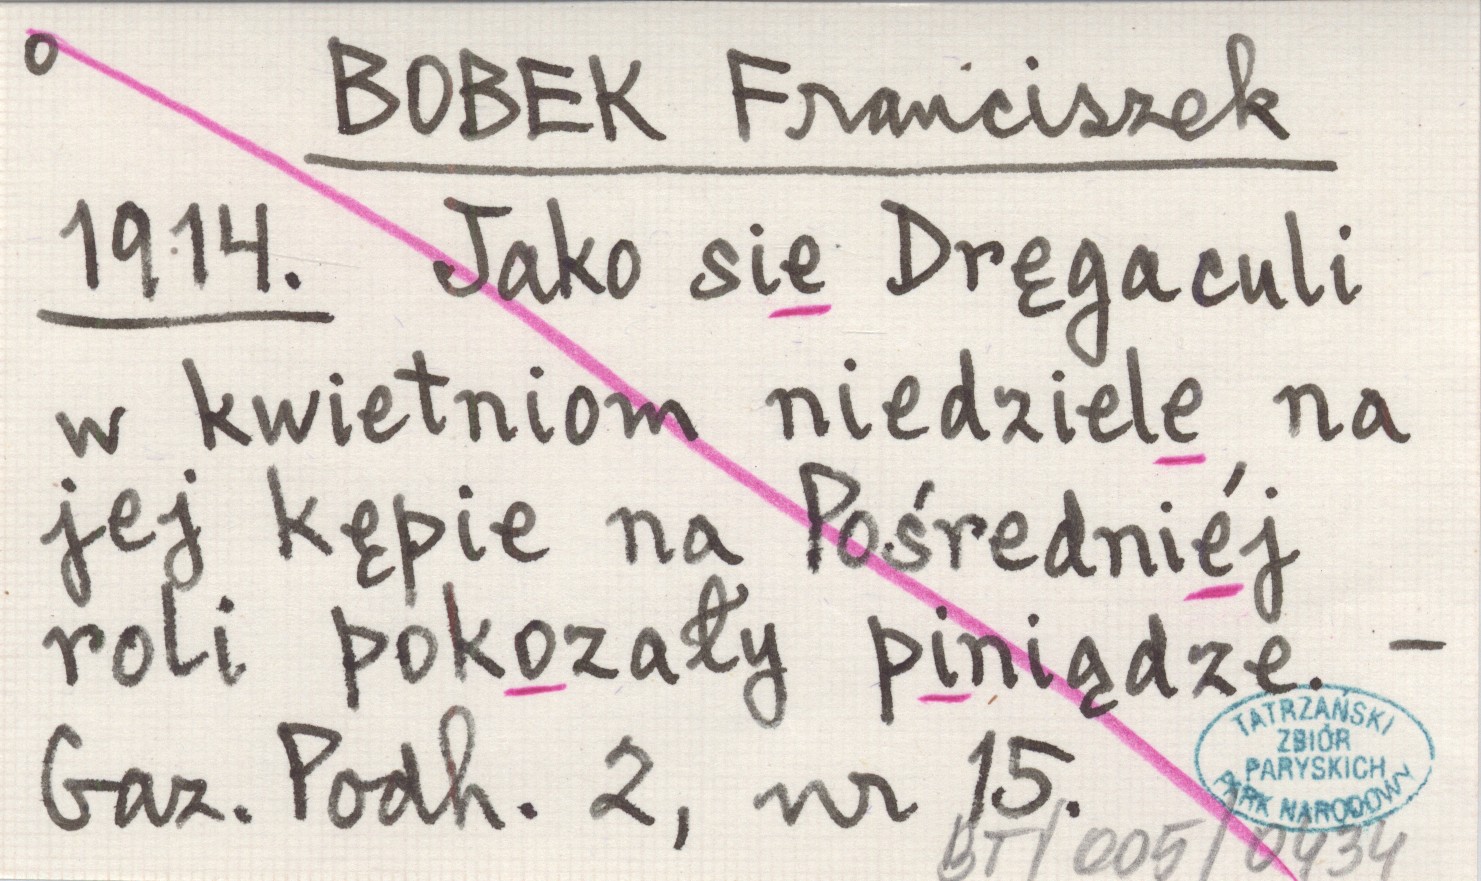 o
BOBEK Franciszek
1914. Jako sie Dręgaculi
w kwietniom niedziele na
jej kępie na Pośredniéj
roli pokozały piniądze. –
Gaz. Podh. 2, nr 15.
TATRZAŃSKI
ZBIÓR
PARYSKICH
PARK NARODOWY
BT/005/0434